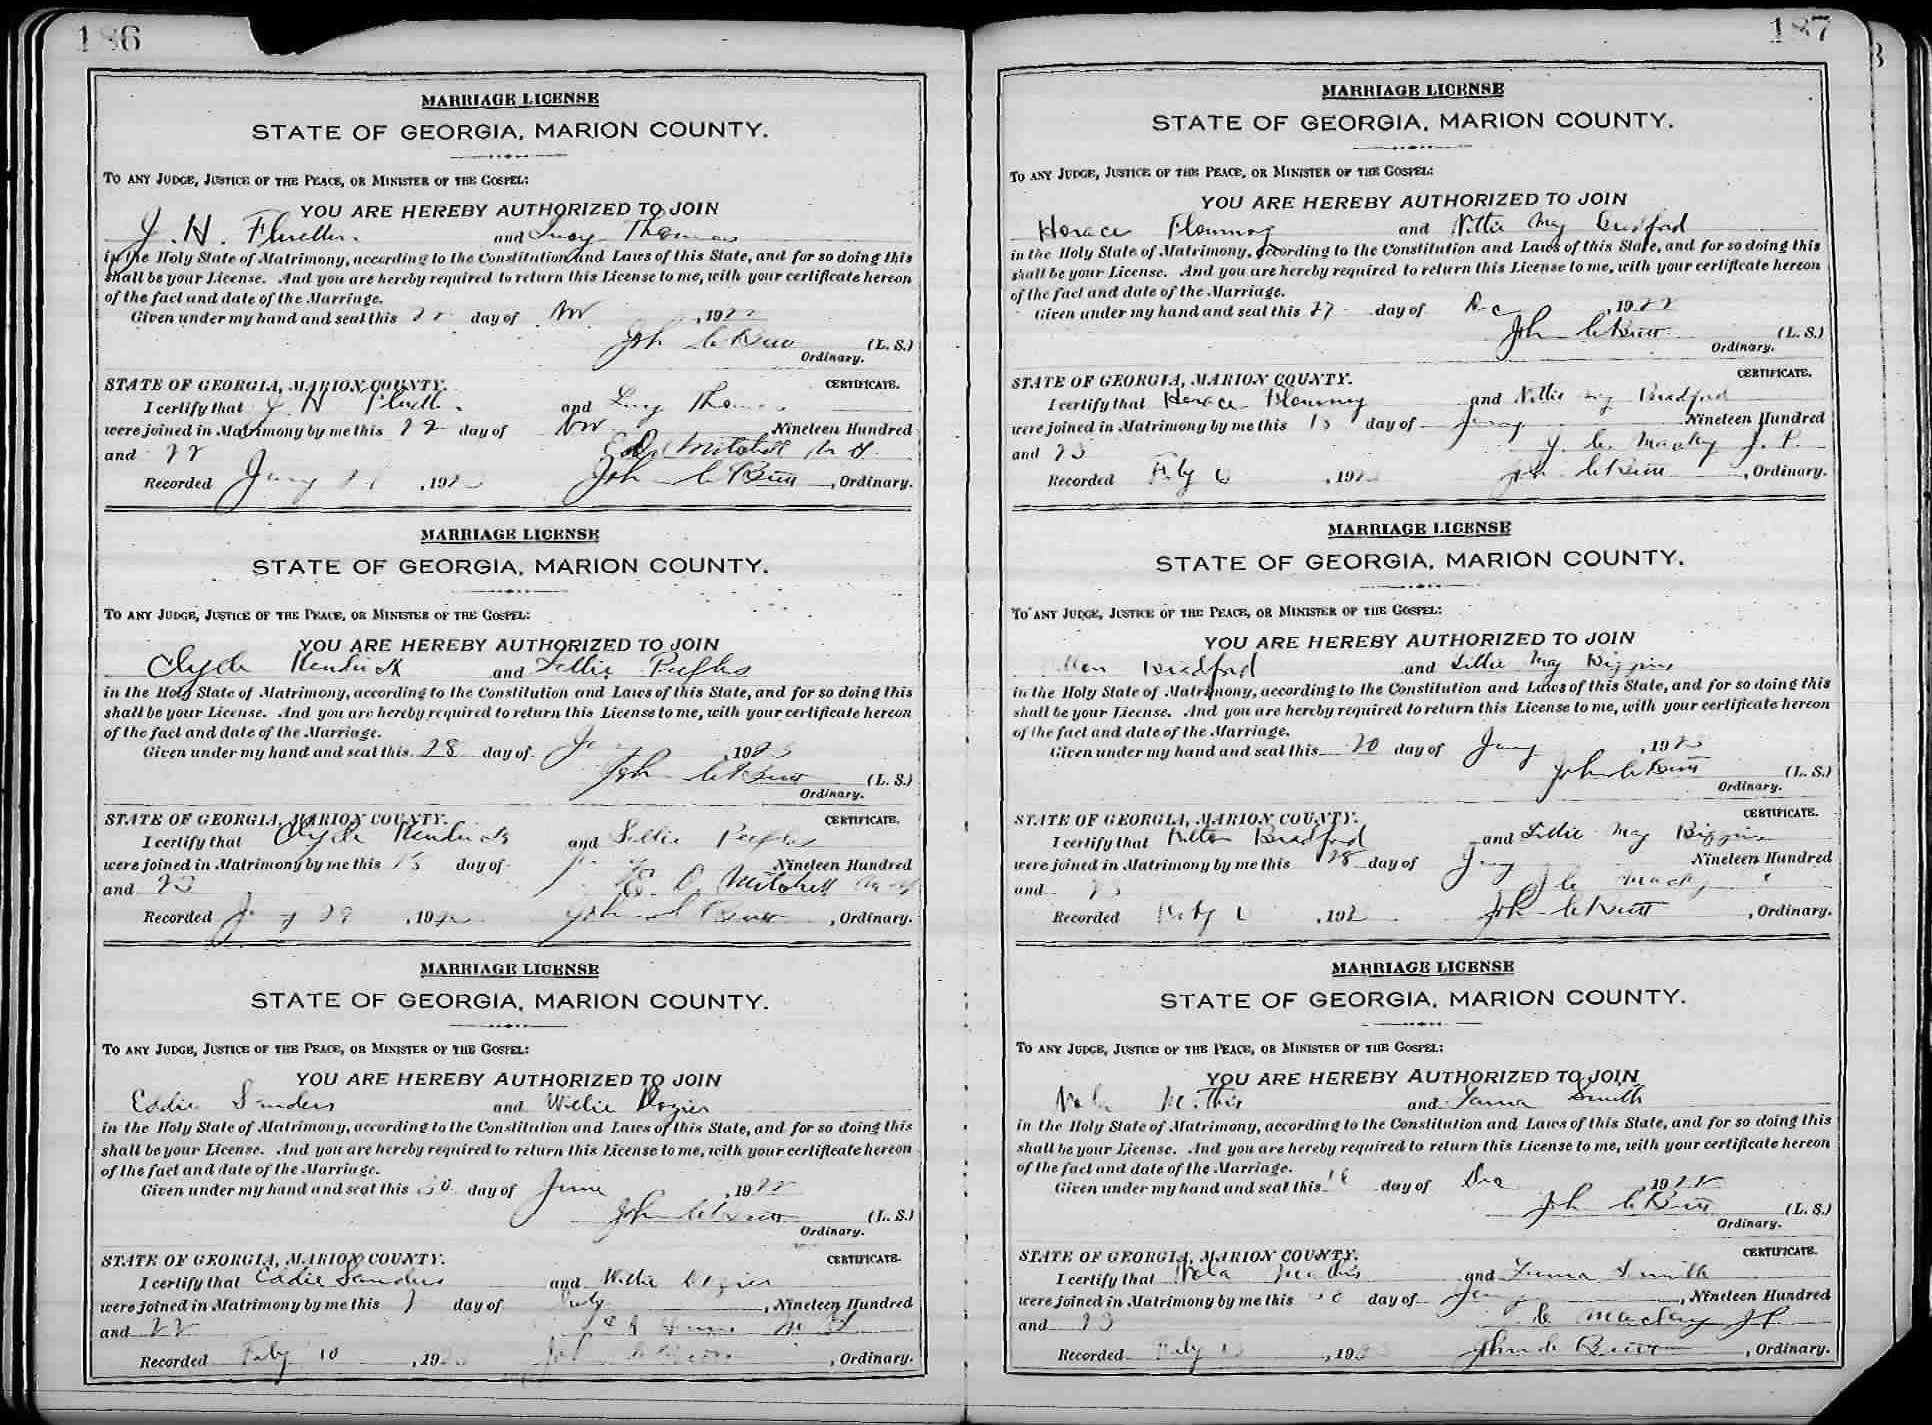 186
MARRIAGE LICENSE
STATE OF GEORGIA, MARION COUNTY.
TO ANY JUDGE, JUSTICE OF THE PEACE, OR MINISTER OF THE GOSPEL:
YOU ARE HEREBY AUTHORIZED TO JOIN
J. H. and Lucy Thomas
in the Holy State of Matrimony, according to the Constitution and Laws of this State, and for so doing this
shall be your License. And you are hereby required to return this License to me, with your certificate hereon
of the fact and date of the Marriage.
Given under my hand and seal this 22 day of Nov , 1922
John C Butt (L. S.)
Ordinary.
STATE OF GEORGIA, MARION COUNTY. CERTIFICATE.
I certify that J. H and Lucy Thomas
were joined in Matrimony by me this 22 day of Nov Nineteen Hundred
and 22 Mitchell M G
Recorded Jany , 192 John C Butt , Ordinary.
MARRIAGE LICENSE
STATE OF GEORGIA, MARION COUNTY.
TO ANY JUDGE, JUSTICE OF THE PEACE, OR MINISTER OF THE GOSPEL:
YOU ARE HEREBY AUTHORIZED TO JOIN
Clyde Kendrick and Lellie Peeples
in the Holy State of Matrimony, according to the Constitution and Laws of this State, and for so doing this
shall be your License. And you are hereby required to return this License to me, with your certificate hereon
of the fact and date of the Marriage.
Given under my hand and seal this 28 day of , 1923
John C Butt (L. S.)
Ordinary.
STATE OF GEORGIA, MARION COUNTY. CERTIFICATE.
I certify that Clyde Kendrick and Lellie Peeples
were joined in Matrimony by me this day of Nineteen Hundred
and 23 E. D. Mitchell
Recorded Jany 29 , 192 John C Butt , Ordinary.
MARRIAGE LICENSE
STATE OF GEORGIA, MARION COUNTY.
TO ANY JUDGE, JUSTICE OF THE PEACE, OR MINISTER OF THE GOSPEL:
YOU ARE HEREBY AUTHORIZED TO JOIN
Eddie Sanders and Willie Dozier
in the Holy State of Matrimony, according to the Constitution and Laws of this State, and for so doing this
shall be your License. And you are hereby required to return this License to me, with your certificate hereon
of the fact and date of the Marriage.
Given under my hand and seal this 30 day of June , 1922
John C Butt (L. S.)
Ordinary.
STATE OF GEORGIA, MARION COUNTY. CERTIFICATE.
I certify that Eddie Sanders and Willie Dozier
were joined in Matrimony by me this day of July , Nineteen Hundred
and 22 M G
Recorded Feby 10 , 192 John C Butt , Ordinary.
187
MARRIAGE LICENSE
STATE OF GEORGIA, MARION COUNTY.
TO ANY JUDGE, JUSTICE OF THE PEACE, OR MINISTER OF THE GOSPEL:
YOU ARE HEREBY AUTHORIZED TO JOIN
Horace Flowing and Nittie May Bradford
in the Holy State of Matrimony, according to the Constitution and Laws of this State, and for so doing this
shall be your License. And you are hereby required to return this License to me, with your certificate hereon
of the fact and date of the Marriage.
Given under my hand and seal this 27 day of Dec , 1922
John C Butt (L. S.)
Ordinary.
STATE OF GEORGIA, MARION COUNTY. CERTIFICATE.
I certify that Horace and Nittie May Bradford
were joined in Matrimony by me this day of Jany Nineteen Hundred
and 23 J. C. Mackey J. P.
Recorded Feby 6 , 192 John C Butt , Ordinary.
MARRIAGE LICENSE
STATE OF GEORGIA, MARION COUNTY.
TO ANY JUDGE, JUSTICE OF THE PEACE, OR MINISTER OF THE GOSPEL:
YOU ARE HEREBY AUTHORIZED TO JOIN
Bradford and Lillie May Biggins
in the Holy State of Matrimony, according to the Constitution and Laws of this State, and for so doing this
shall be your License. And you are hereby required to return this License to me, with your certificate hereon
of the fact and date of the Marriage.
Given under my hand and seal this 20 day of Jany , 1923
John C Butt (L. S.)
Ordinary.
STATE OF GEORGIA, MARION COUNTY. CERTIFICATE.
I certify that Bradford and Lillie May Biggins
were joined in Matrimony by me this 28 day of Jany Nineteen Hundred
and 23 J C Mackey
Recorded Feby 6 , 192 John C Butt , Ordinary.
MARRIAGE LICENSE
STATE OF GEORGIA, MARION COUNTY.
TO ANY JUDGE, JUSTICE OF THE PEACE, OR MINISTER OF THE GOSPEL:
YOU ARE HEREBY AUTHORIZED TO JOIN
Nola Mathis and Smith
in the Holy State of Matrimony, according to the Constitution and Laws of this State, and for so doing this
shall be your License. And you are hereby required to return this License to me, with your certificate hereon
of the fact and date of the Marriage.
Given under my hand and seal this day of Dec 1922
John C Butt (L. S.)
Ordinary.
STATE OF GEORGIA, MARION COUNTY. CERTIFICATE.
I certify that Nola Mathis and Smith
were joined in Matrimony by me this day of Jany , Nineteen Hundred
and 23 J. C Mackey J P
Recorded Feby , 192 John C Butt , Ordinary.